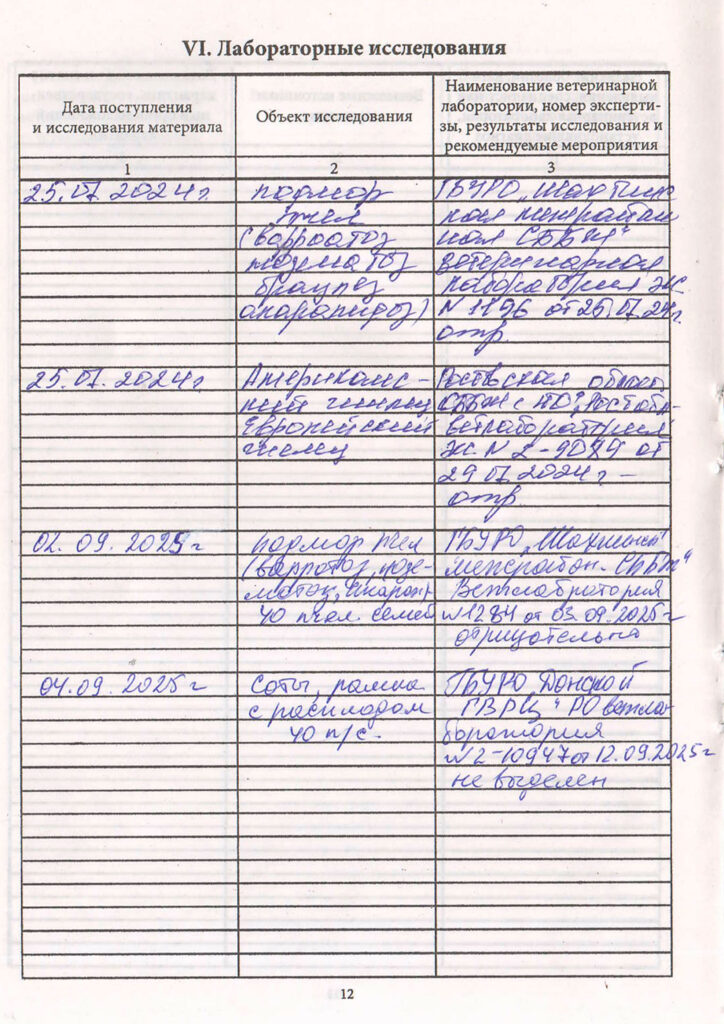 VI. Лабораторные исследования
Дата поступления
и исследования материала
Объект исследования
Наименование ветеринарной
лаборатории, номер эксперти-
зы, результаты исследования и
рекомендуемые мероприятия
1
2
3
25.07.2024г.
подмор
пчел
(варроатоз
нозематоз
браулез
акарапидоз)
ГБУРО „Шахтинс
кая межрайон
ная СББЖ"
ветеринарная
лаборатория эк.
N 1196 от 25.07.24г.
отр.
25.07.2024г.
Американс-
кий гнилец
Европейский
гнилец
Ростовская област
СББЖ с ПО
ветлаборатория
эк. N 2-9089 от
29.07.2024г –
отр
02.09.2025г
подмор пчел
(варроатоз, нозе-
матоз, акарап)
40 пчел. семей
ГБУРО „Шахтинск
межрайон. СББЖ"
Ветлабратория
N1284 от 03.09.2025г
отрицательна
04.09.2025г
Соты, рамка
с расплодом
40 п/с.
ГБУРО Донской
ГВРЦ" РО ветла-
боратория
N2-10947 от 12.09.2025г
не выделен
12